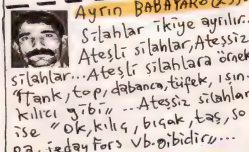 Aytin BABAYARO
Silahlar ikiye ayrılır.
Ateşli silahlar, Ateşsiz
silahlar... Ateşli silahlara örnek
"Tank, top, dabanca, tüfek, ışın
kılıcı gibi"... Ateşsiz silahlar
ise "Ok, kılıç, bıçak, taş, so
pa, jeday fors vb. gibidir"...